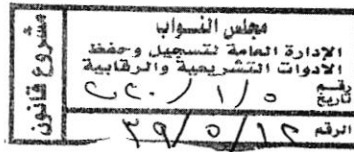 مشروع قانون
مجلس النواب
الادارة العامة لتسجيل وحفظ
الادوات التشريعية والرقابية
رقم
تاريخ ٢٠٢٠/١/٥
الرقم ٣٩/٥/١٢